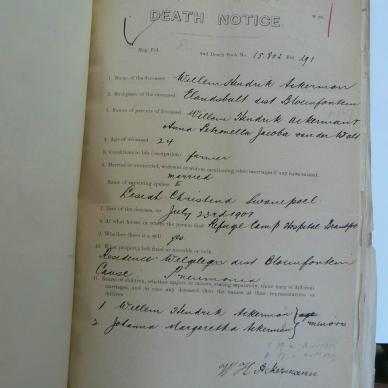 DEATH NOTICE.
and Death Book No. 15,802 Fol. 291
1. Name of the deceased Willem Hendrik Ackerman
2. Birthplace of the deceased Elandsbult dist Bloemfontein
3. Names of parents of deceased Willem Hendrik Ackerman &
Anna Petronella Jacoba van der Walt
4. Age of deceased 24
5. Conditions in life (occupation) farmer
6. Married or unmarried, widower or widow, mentioning other marriages if any have existed.
married
Name of surviving spouse
Lesiah Christina Swanepoel
7. Date of the decease, on July 23rd 1901
8. At what house, or where the person died Refuge Camp Hospital
9. Whether there is a will yes
10. What property left fixed or movable or both
Residence Welgelegen dist Bloemfontein
Cause Pneumonia
11. Names of children, whether majors or minors, stating separately, those born of different
marriages, and in case any deceased then the names of their representatives or
children
1 Willem Hendrik Ackerman
2 Johanna Margaretha Ackerman minors
W H Ackermann